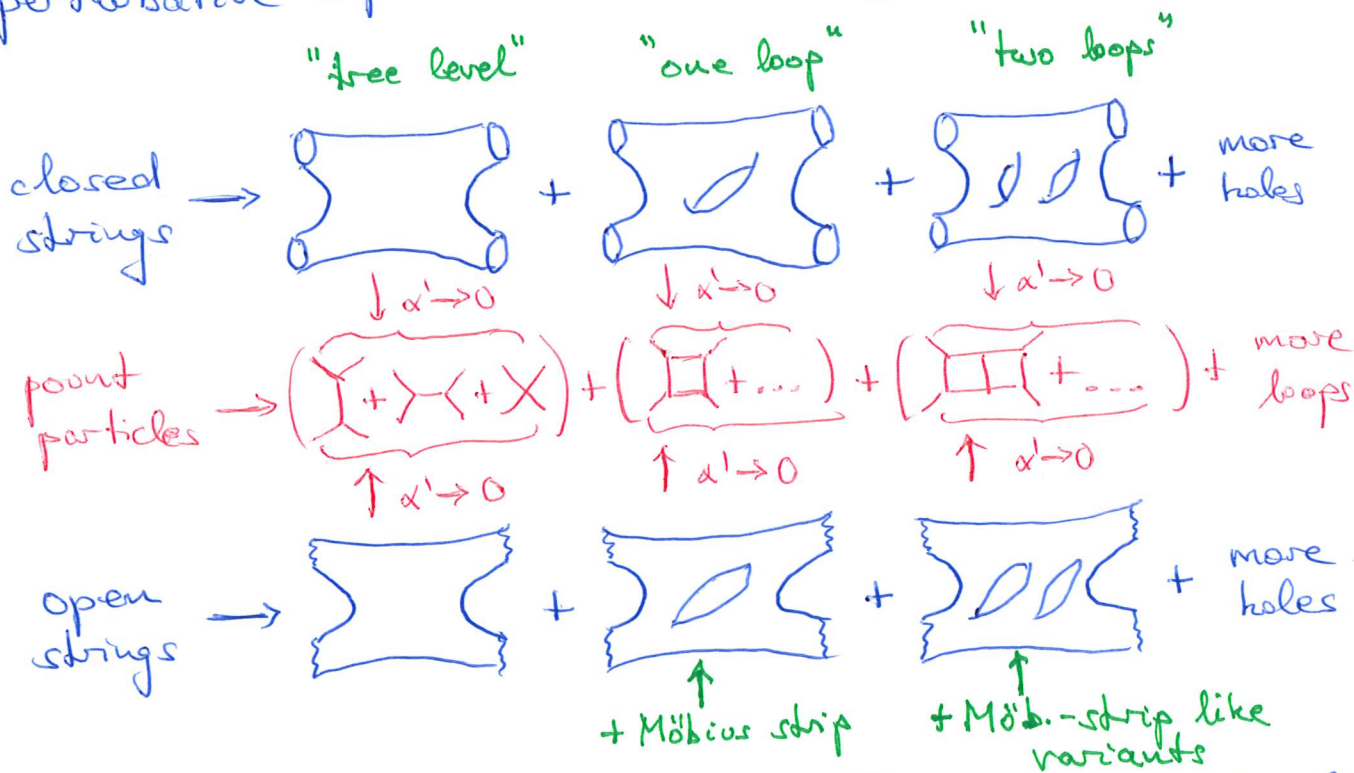 "tree level" "one loop" "two loops"
closed strings → + + + more holes
↓ α'→0 ↓ α'→0 ↓ α'→0
pount particles → ( + + ) + ( +....) + ( +....) + more loops
↑ α'→0 ↑ α'→0 ↑ α'→0
open strings → + + + more holes
↑ ↑
+ Möbius strip + Möb.-strip like
variants